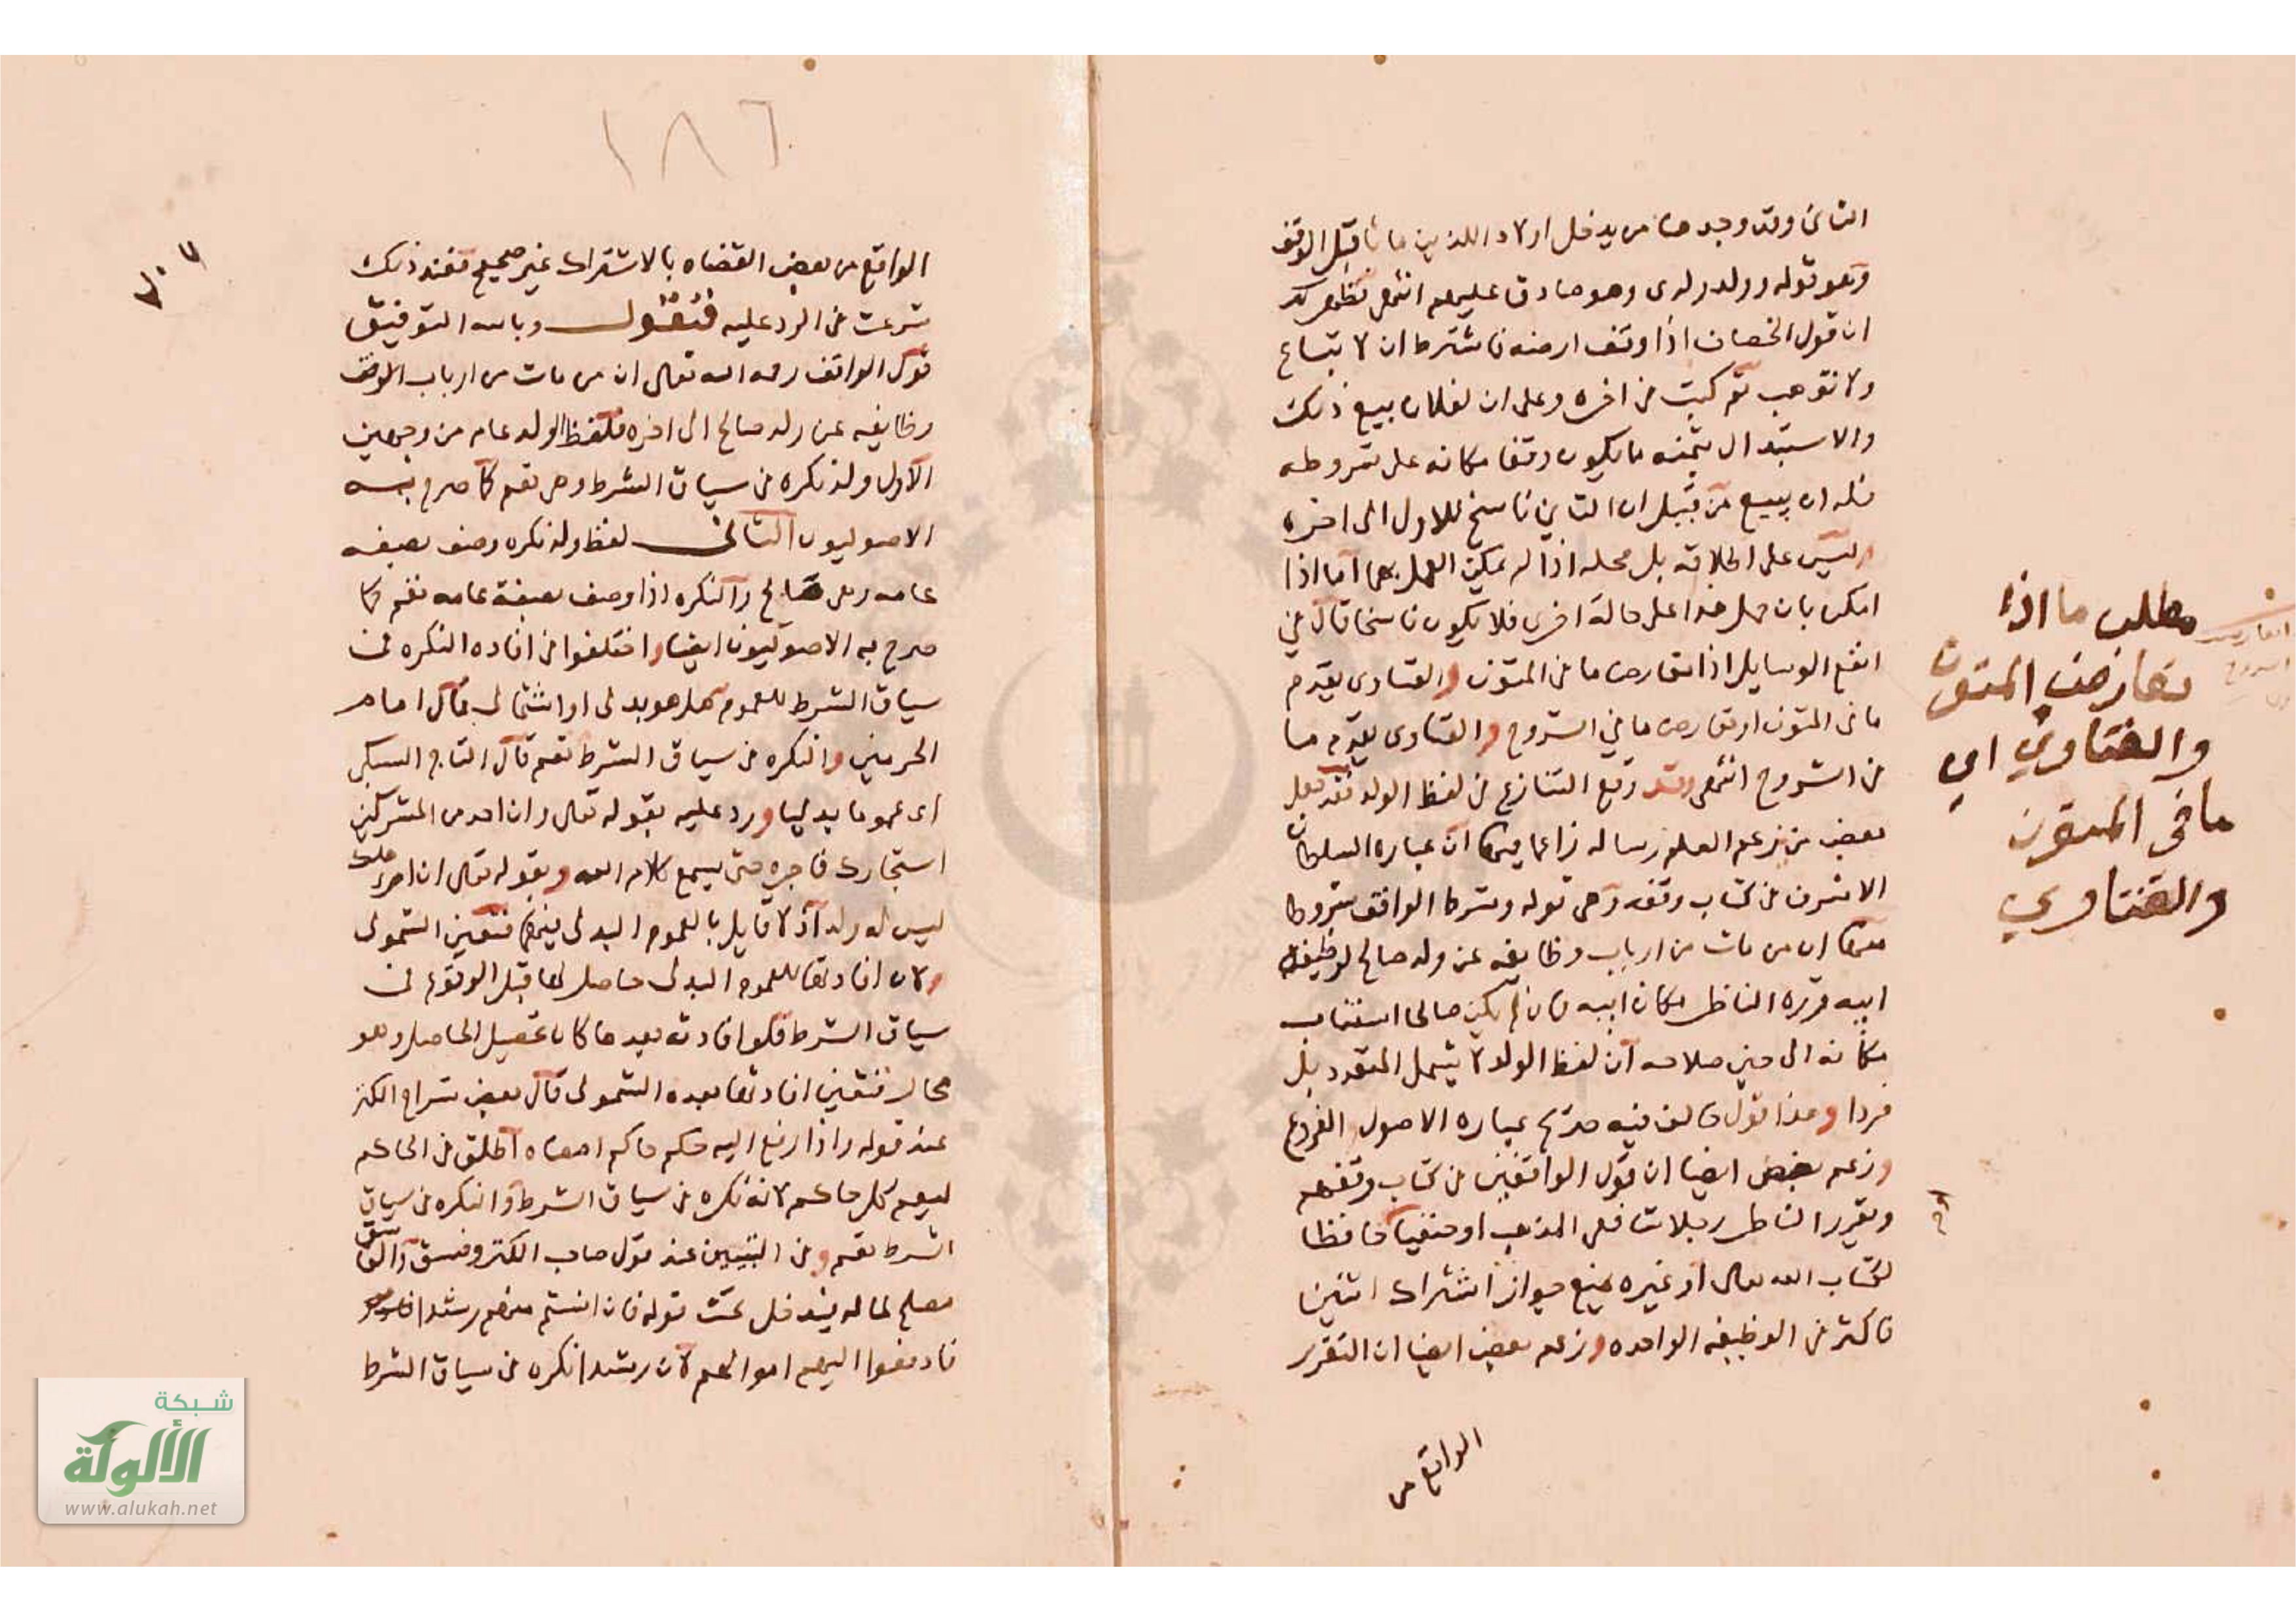 الثاني وقد وجد هنا من يدخل اولاد اللذين ماتا قبل الوقف
وهو قوله وولد ولدى وهو صادق عليهم انتهى فظهر لك
ان قول الخصاف اذا وقف ارضه فاشترط ان لا تباع
ولا توهب ثم كتب في اخره وعلى ان لفلان بيع ذلك
والاستبدال بثمنه ما يكون وقفا مكانه على شروطه
فله ان يبيع من قبل ان الثاني ناسخ للاول الى اخره
وليس على اطلاقه بل محله اذا لم يمكن العمل بهما اما اذا
امكن بان حمل هذا على حالة اخرى فلا يكون ناسخا قال في
انفع الوسايل اذا تعارض ما في المتون والفتاوى يقدم
ما في المتون او تعارض ما في الشروح والفتاوى يقدم ما
في الشروح انتهى وقد وقع التنازع في لفظ الولد فقد عمل
بعض من زعم العلم رسالة زاعما فيها ان عبارة السلطان
الاشرف في كتاب وقفه وهى قوله وشرط الواقف شروطا
منها ان من مات من ارباب وظايفه عن ولد صالح لوظيفة
ابيه قرره الناظر مكان ابيه فان لم يكن صالحا استناب
مكانه الى حين صلاحه ان لفظ الولد لا يشمل المتعدد بل
فردا وهذا قول خالف فيه صريح عبارة الاصول والفروع
وزعم بعض ايضا ان قول الواقفين في كتاب وقفهم
ويقرر الناظر رجلا شافعى المذهب او حنفيا حافظا
لكتاب الله تعالى او غيره يمنع جواز اشتراك اثنين
فاكثر في الوظيفه الواحده وزعم بعض ايضا ان التقرر
الواقع من
مطلب ما اذا
تعارض المتون
والفتاوي اي
ما في المتون
والفتاوي
١٨٦
الواقع من بعض القضاه بالاشتراك غير صحيح فعند ذلك
شرعت في الرد عليه فنقول وبالله التوفيق
قول الواقف رحمه الله تعالى ان من مات من ارباب الوقف
وظايفه عن ولد صالح الى اخره فلفظ الولد عام من وجهين
الاول ولد نكره في سياق الشرط وهى تعم كما صرح به
الاصوليون الثاني لفظ ولد نكره وصف بصفه
عامه وهى صالح والنكره اذا وصف بصفة عامه تعم كما
صرح به الاصوليون ايضا واختلفوا في افاده النكره في
سياق الشرط للعموم هل هو بدلى او اشتمالى قال امام
الحرمين والنكره في سياق الشرط تعم قال التاج السبكى
اى عموما بدليا ورد عليه بقوله تعالى وان احد من المشركين
استجارك فاجره حتى يسمع كلام الله وبقوله تعالى ان امرؤ هلك
ليس له ولد اذ لا قايل بالعموم البدلى فيهما فتعين الشمولى
ولان افادتها للعموم البدلى حاصل لها قبل الوقوع في
سياق الشرط فلو افادته بعد ما كان تحصيل الحاصل وهو
محال فتعين افادتها بعده الشمولى قال بعض شراح الكنز
عند قوله واذا رفع اليه حكم حاكم امضاه اطلق في الحاكم
ليعم كل حاكم لانه نكره في سياق الشرط والنكره في سياق
الشرط تعم وفى التبيين عند قول صاحب الكنز وفسق والفاسق
مصلح لماله فيدخل تحت قوله فان انستم منهم رشدا
فادفعوا اليهم اموالهم لان رشدا نكره في سياق الشرط
شبكة
الألوكة
www.alukah.net